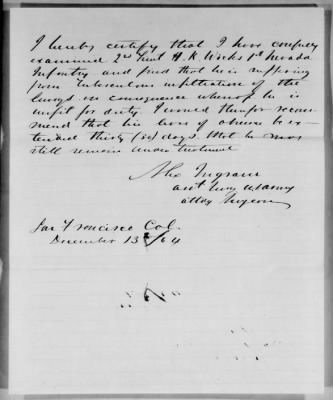 I hereby certify that I have carefully
examined 2nd Lieut H. K. Wicks 1st Nevada
Infantry and find that he is suffering
from tuberculous infiltration of the
lungs in consequence whereof he is
unfit for duty. I would therefor recom
mend that his leave of absence be ex-
tended thirty (30) days. That he may
still remain under treatment
Ingram
asst Surg U.S. Army
attdg Surgeon
San Francisco Cal.
December 13th/64